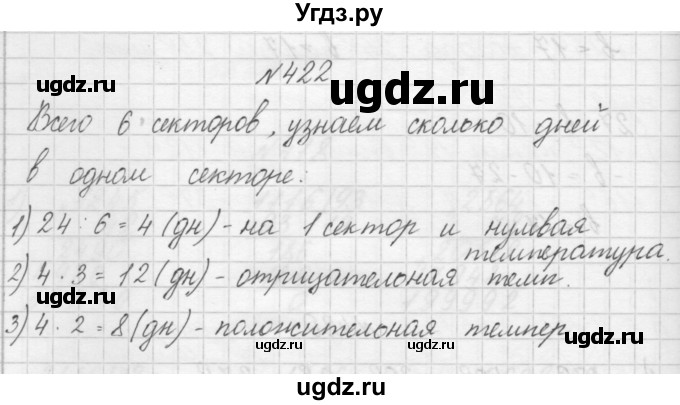 Угдз.ру
№422
ugdz.ru ugdz.ru ugdz.ru
Всего 6 секторов, узнаем сколько дней
в одном секторе:
ugdz.ru ugdz.ru
1) 24 : 6 = 4 (дн) - на 1 сектор и нулевая
температура.
ugdz.ru
2) 4 · 3 = 12 (дн) - отрицательная темп.
3) 4 · 2 = 8 (дн) - положительная темпер
ugdz.ru ugdz.ru
ugdz.ru